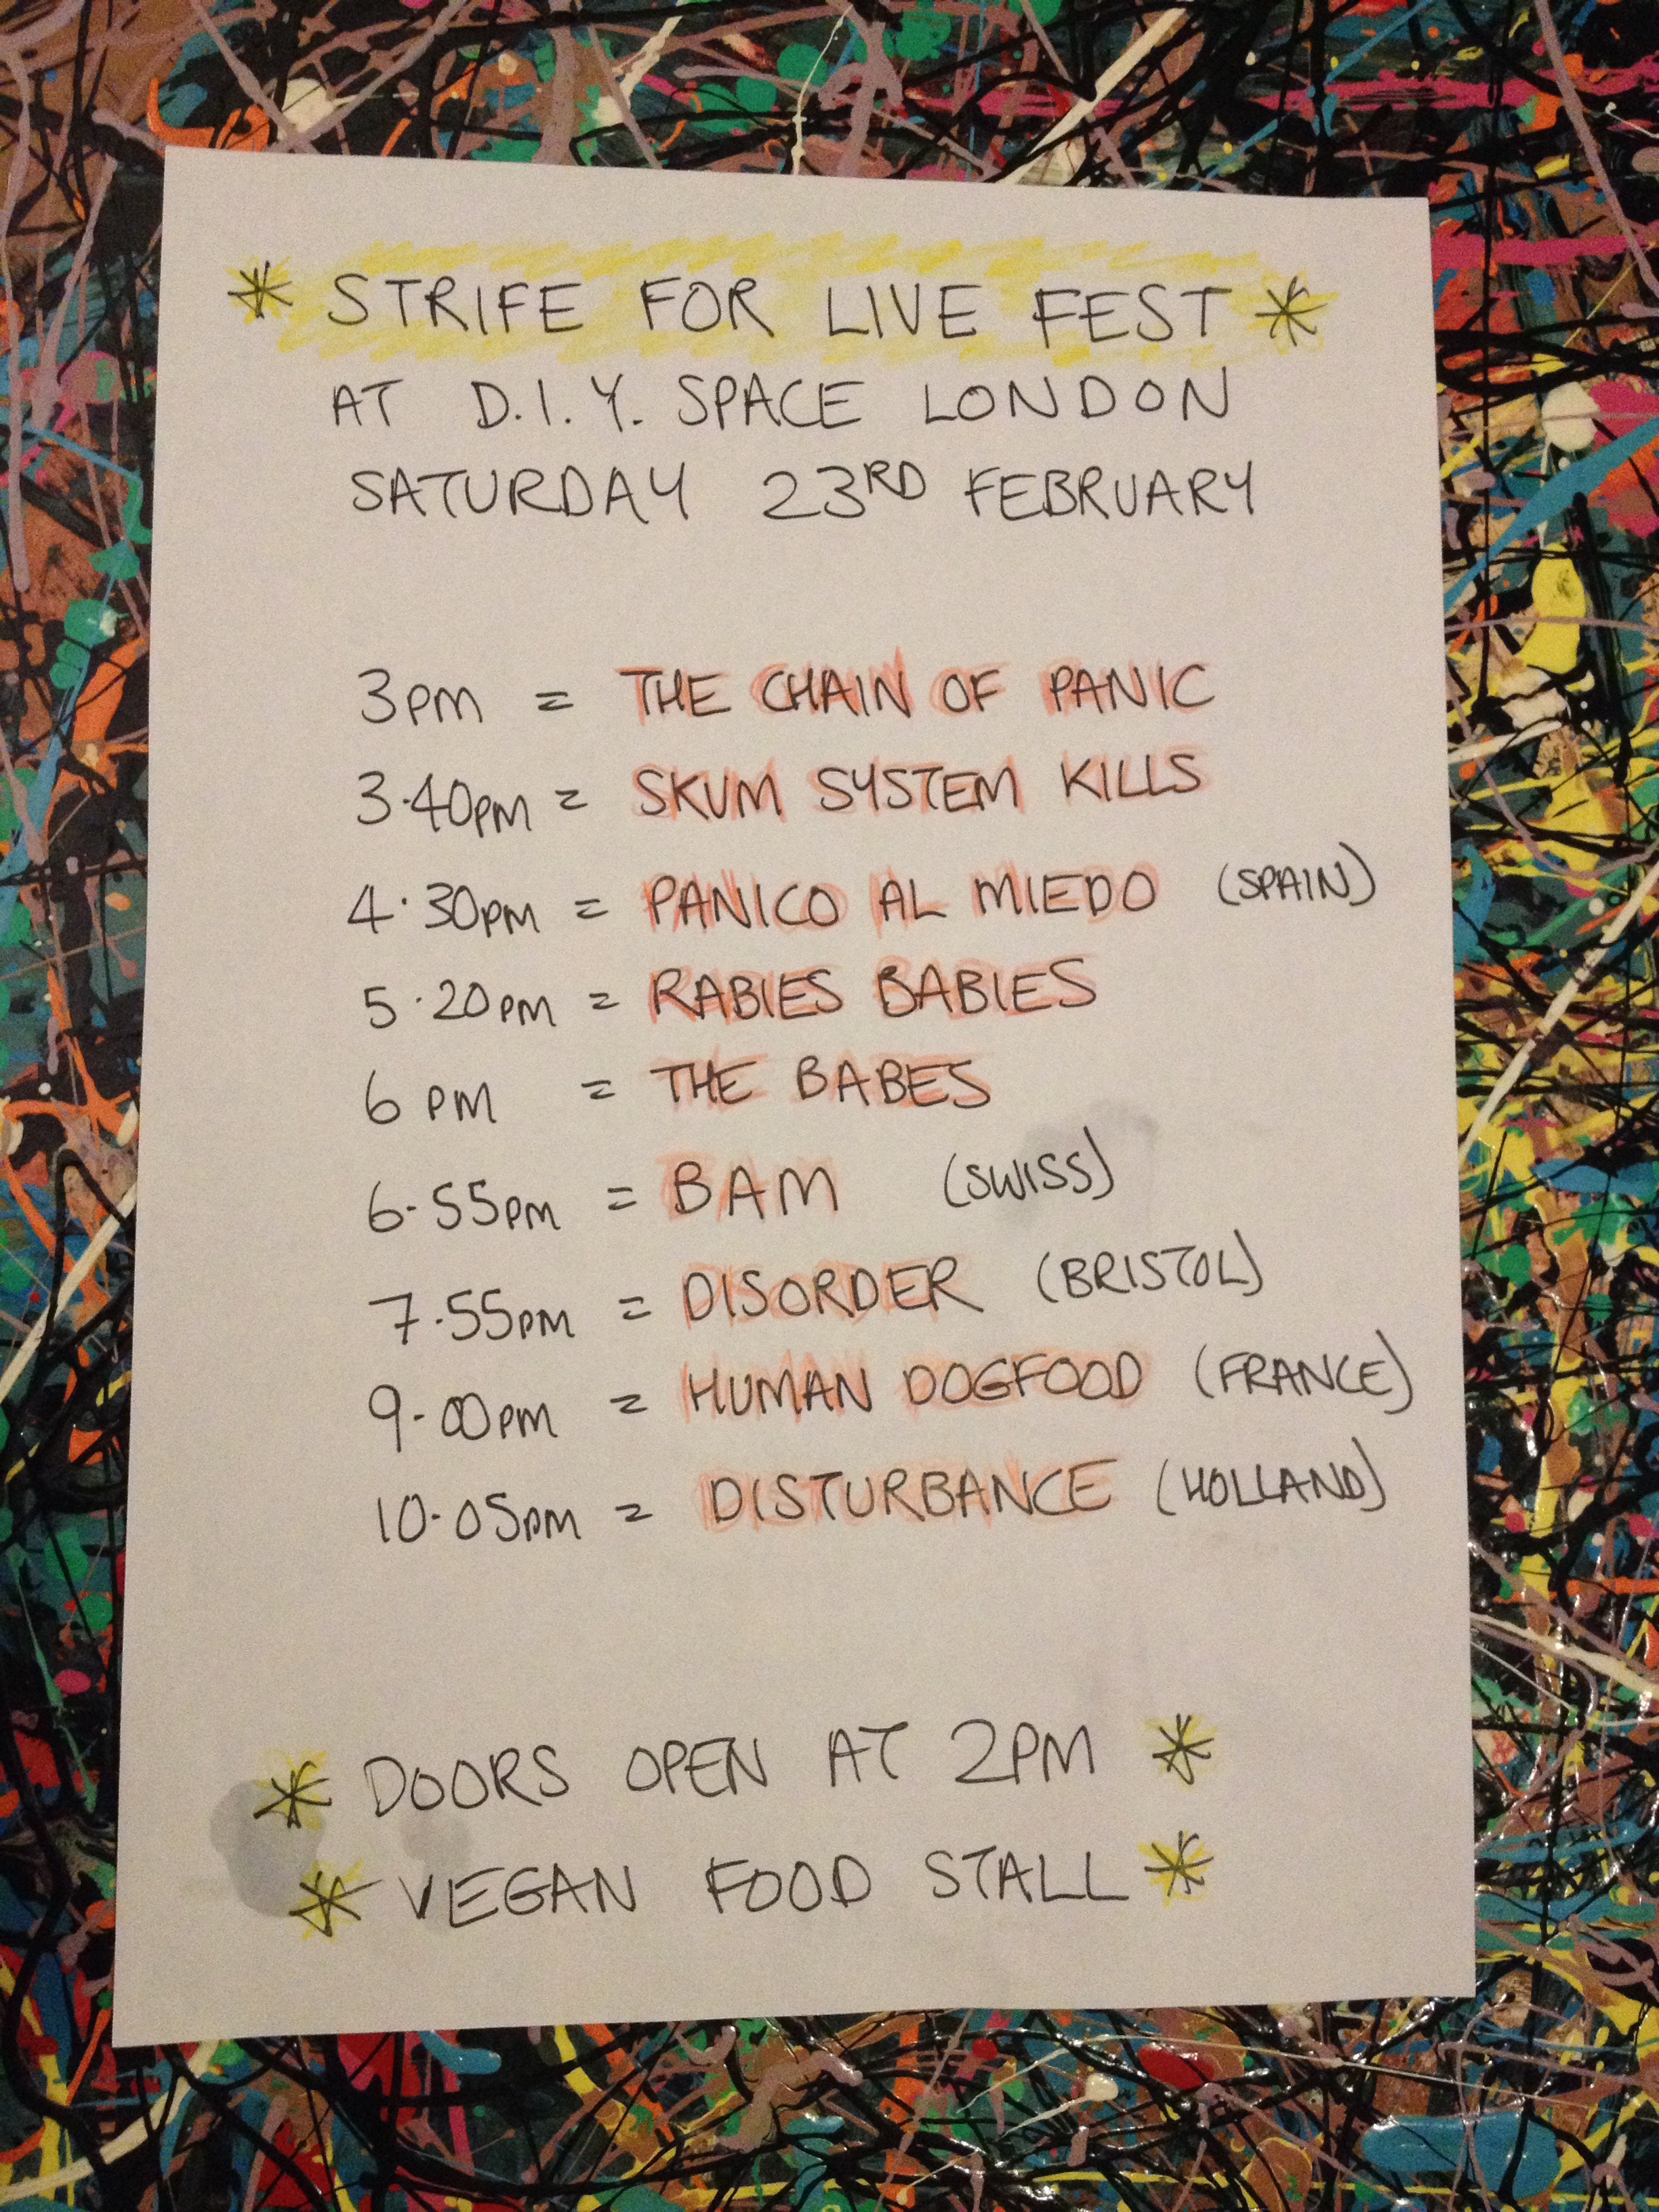 * STRIFE FOR LIVE FEST *
AT D.I.Y. SPACE LONDON
SATURDAY 23RD FEBRUARY
3PM = THE CHAIN OF PANIC
3.40PM = SKUM SYSTEM KILLS
4.30PM = PANICO AL MIEDO (SPAIN)
5.20PM = RABIES BABIES
6PM = THE BABES
6.55PM = BAM (SWISS)
7.55PM = DISORDER (BRISTOL)
9.00PM = HUMAN DOGFOOD (FRANCE)
10.05PM = DISTURBANCE (HOLLAND)
* DOORS OPEN AT 2PM *
* VEGAN FOOD STALL *